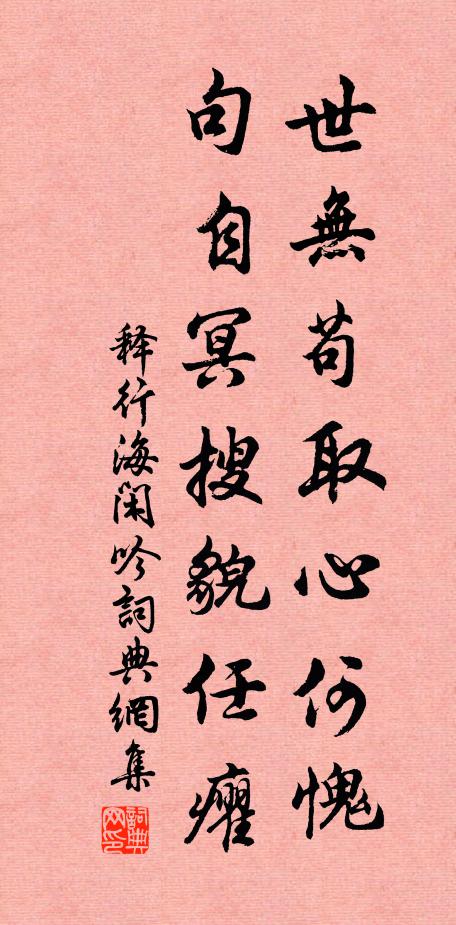 世無苟取心何愧
句自冥搜貌任癯
释行海閑吟詞典網集
詞典网印